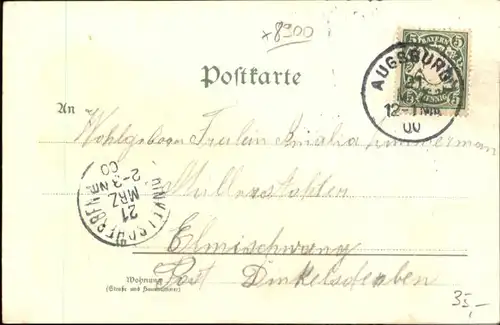 x 8900
5 BAYERN 5
5 PFENNIG 5
AUGSBURG
21
12-1 Nm
00
Postkarte
An
Wohlgeboren Fräulein Amalia Zimmerman
DINKELSCHERBEN
21
MRZ
2-3 NM
00
Müllerstochter
Elmischwang
Post Dinkelscherben
Wohnung
(Straße und Hausnummer)
35,-